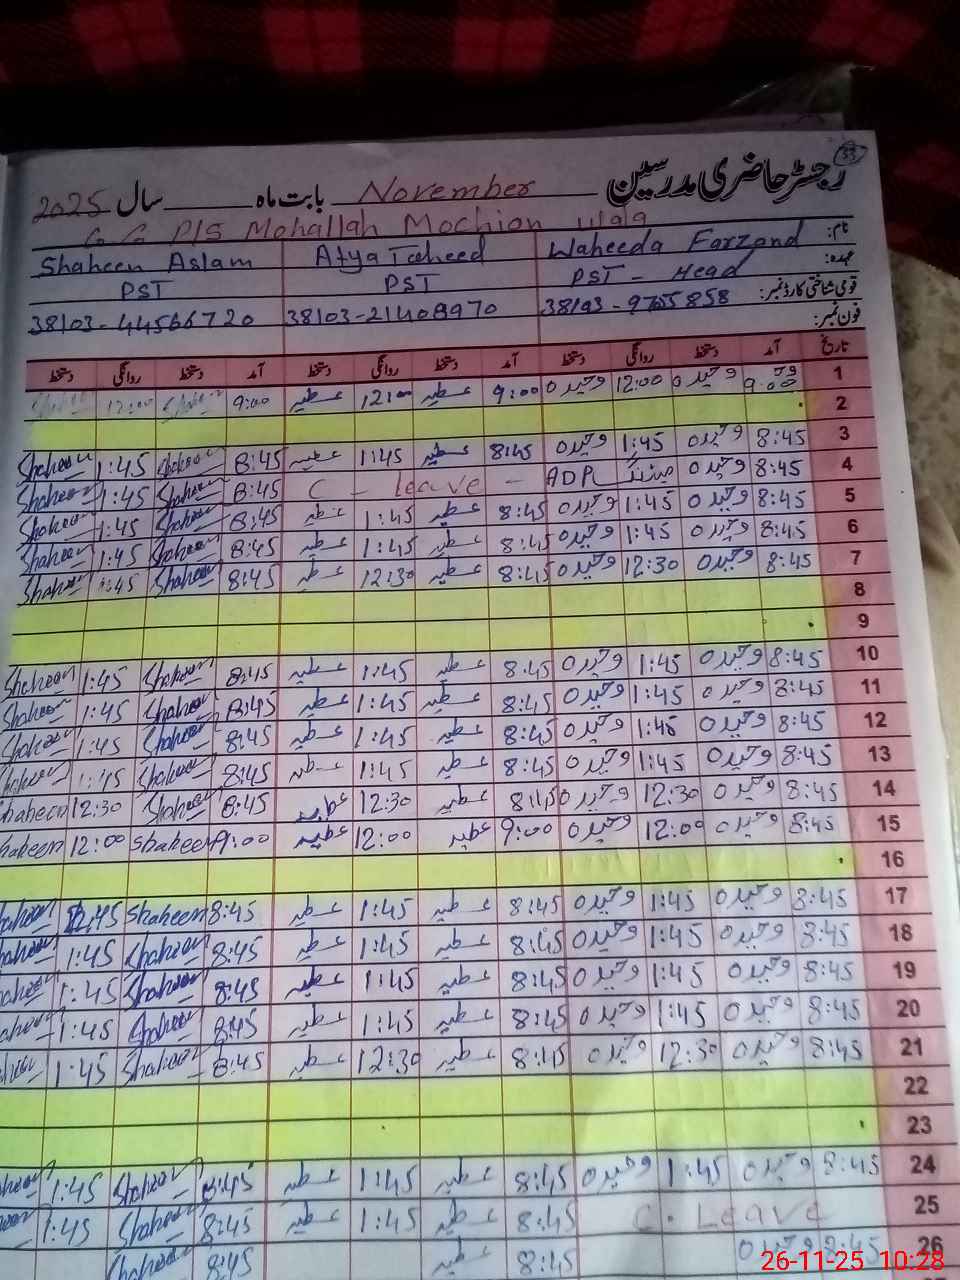 33
رجسٹر حاضری مدرسین بابت ماہ November سال 2025
G G P/S Mohallah Mochion wala
نام: Waheeda Farzand Atya Taheed Shaheen Aslam
عہدہ: PST - Head PST PST
قومی شناختی کارڈ نمبر: 38103-9765858 38103-21408970 38103-44566720
فون نمبر:
تاریخ آمد دستخط روانگی دستخط آمد دستخط روانگی دستخط آمد دستخط روانگی دستخط
1 9:00 وحیدہ 12:00 وحیدہ 9:00 عطیہ 12:00 عطیہ 9:00 Shaheen 12:00 Shaheen
2
3 8:45 وحیدہ 1:45 وحیدہ 8:45 عطیہ 1:45 عطیہ 8:45 Shaheen 1:45 Shaheen
4 8:45 وحیدہ میٹنگ ADP C - Leave - 8:45 Shaheen 1:45 Shaheen
5 8:45 وحیدہ 1:45 وحیدہ 8:45 عطیہ 1:45 عطیہ 8:45 Shaheen 1:45 Shaheen
6 8:45 وحیدہ 1:45 وحیدہ 8:45 عطیہ 1:45 عطیہ 8:45 Shaheen 1:45 Shaheen
7 8:45 وحیدہ 12:30 وحیدہ 8:45 عطیہ 12:30 عطیہ 8:45 Shaheen Shaheen
8
9
10 8:45 وحیدہ 1:45 وحیدہ 8:45 عطیہ 1:45 عطیہ 8:45 Shaheen 1:45 Shaheen
11 8:45 وحیدہ 1:45 وحیدہ 8:45 عطیہ 1:45 عطیہ 8:45 Shaheen 1:45 Shaheen
12 8:45 وحیدہ 1:45 وحیدہ 8:45 عطیہ 1:45 عطیہ 8:45 Shaheen 1:45 Shaheen
13 8:45 وحیدہ 1:45 وحیدہ 8:45 عطیہ 1:45 عطیہ 8:45 Shaheen 1:45 Shaheen
14 8:45 وحیدہ 12:30 وحیدہ 8:45 عطیہ 12:30 عطیہ 8:45 Shaheen 12:30 Shaheen
15 8:45 وحیدہ 12:00 وحیدہ 9:00 عطیہ 12:00 عطیہ 9:00 Shaheen 12:00 Shaheen
16
17 8:45 وحیدہ 1:45 وحیدہ 8:45 عطیہ 1:45 عطیہ 8:45 Shaheen Shaheen
18 8:45 وحیدہ 1:45 وحیدہ 8:45 عطیہ 1:45 عطیہ 8:45 Shaheen 1:45 Shaheen
19 8:45 وحیدہ 1:45 وحیدہ 8:45 عطیہ 1:45 عطیہ 8:45 Shaheen 1:45 Shaheen
20 8:45 وحیدہ 1:45 وحیدہ 8:45 عطیہ 1:45 عطیہ 8:45 Shaheen 1:45 Shaheen
21 8:45 وحیدہ 12:30 وحیدہ 8:45 عطیہ 12:30 عطیہ 8:45 Shaheen 1:45
22
23
24 8:45 وحیدہ 1:45 وحیدہ 8:45 عطیہ 1:45 عطیہ 8:45 Shaheen 1:45 Shaheen
25 C. Leave 8:45 عطیہ 1:45 عطیہ 8:45 Shaheen 1:45
26 8:45 وحیدہ 8:45 عطیہ 8:45 Shaheen
26-11-25 10:28